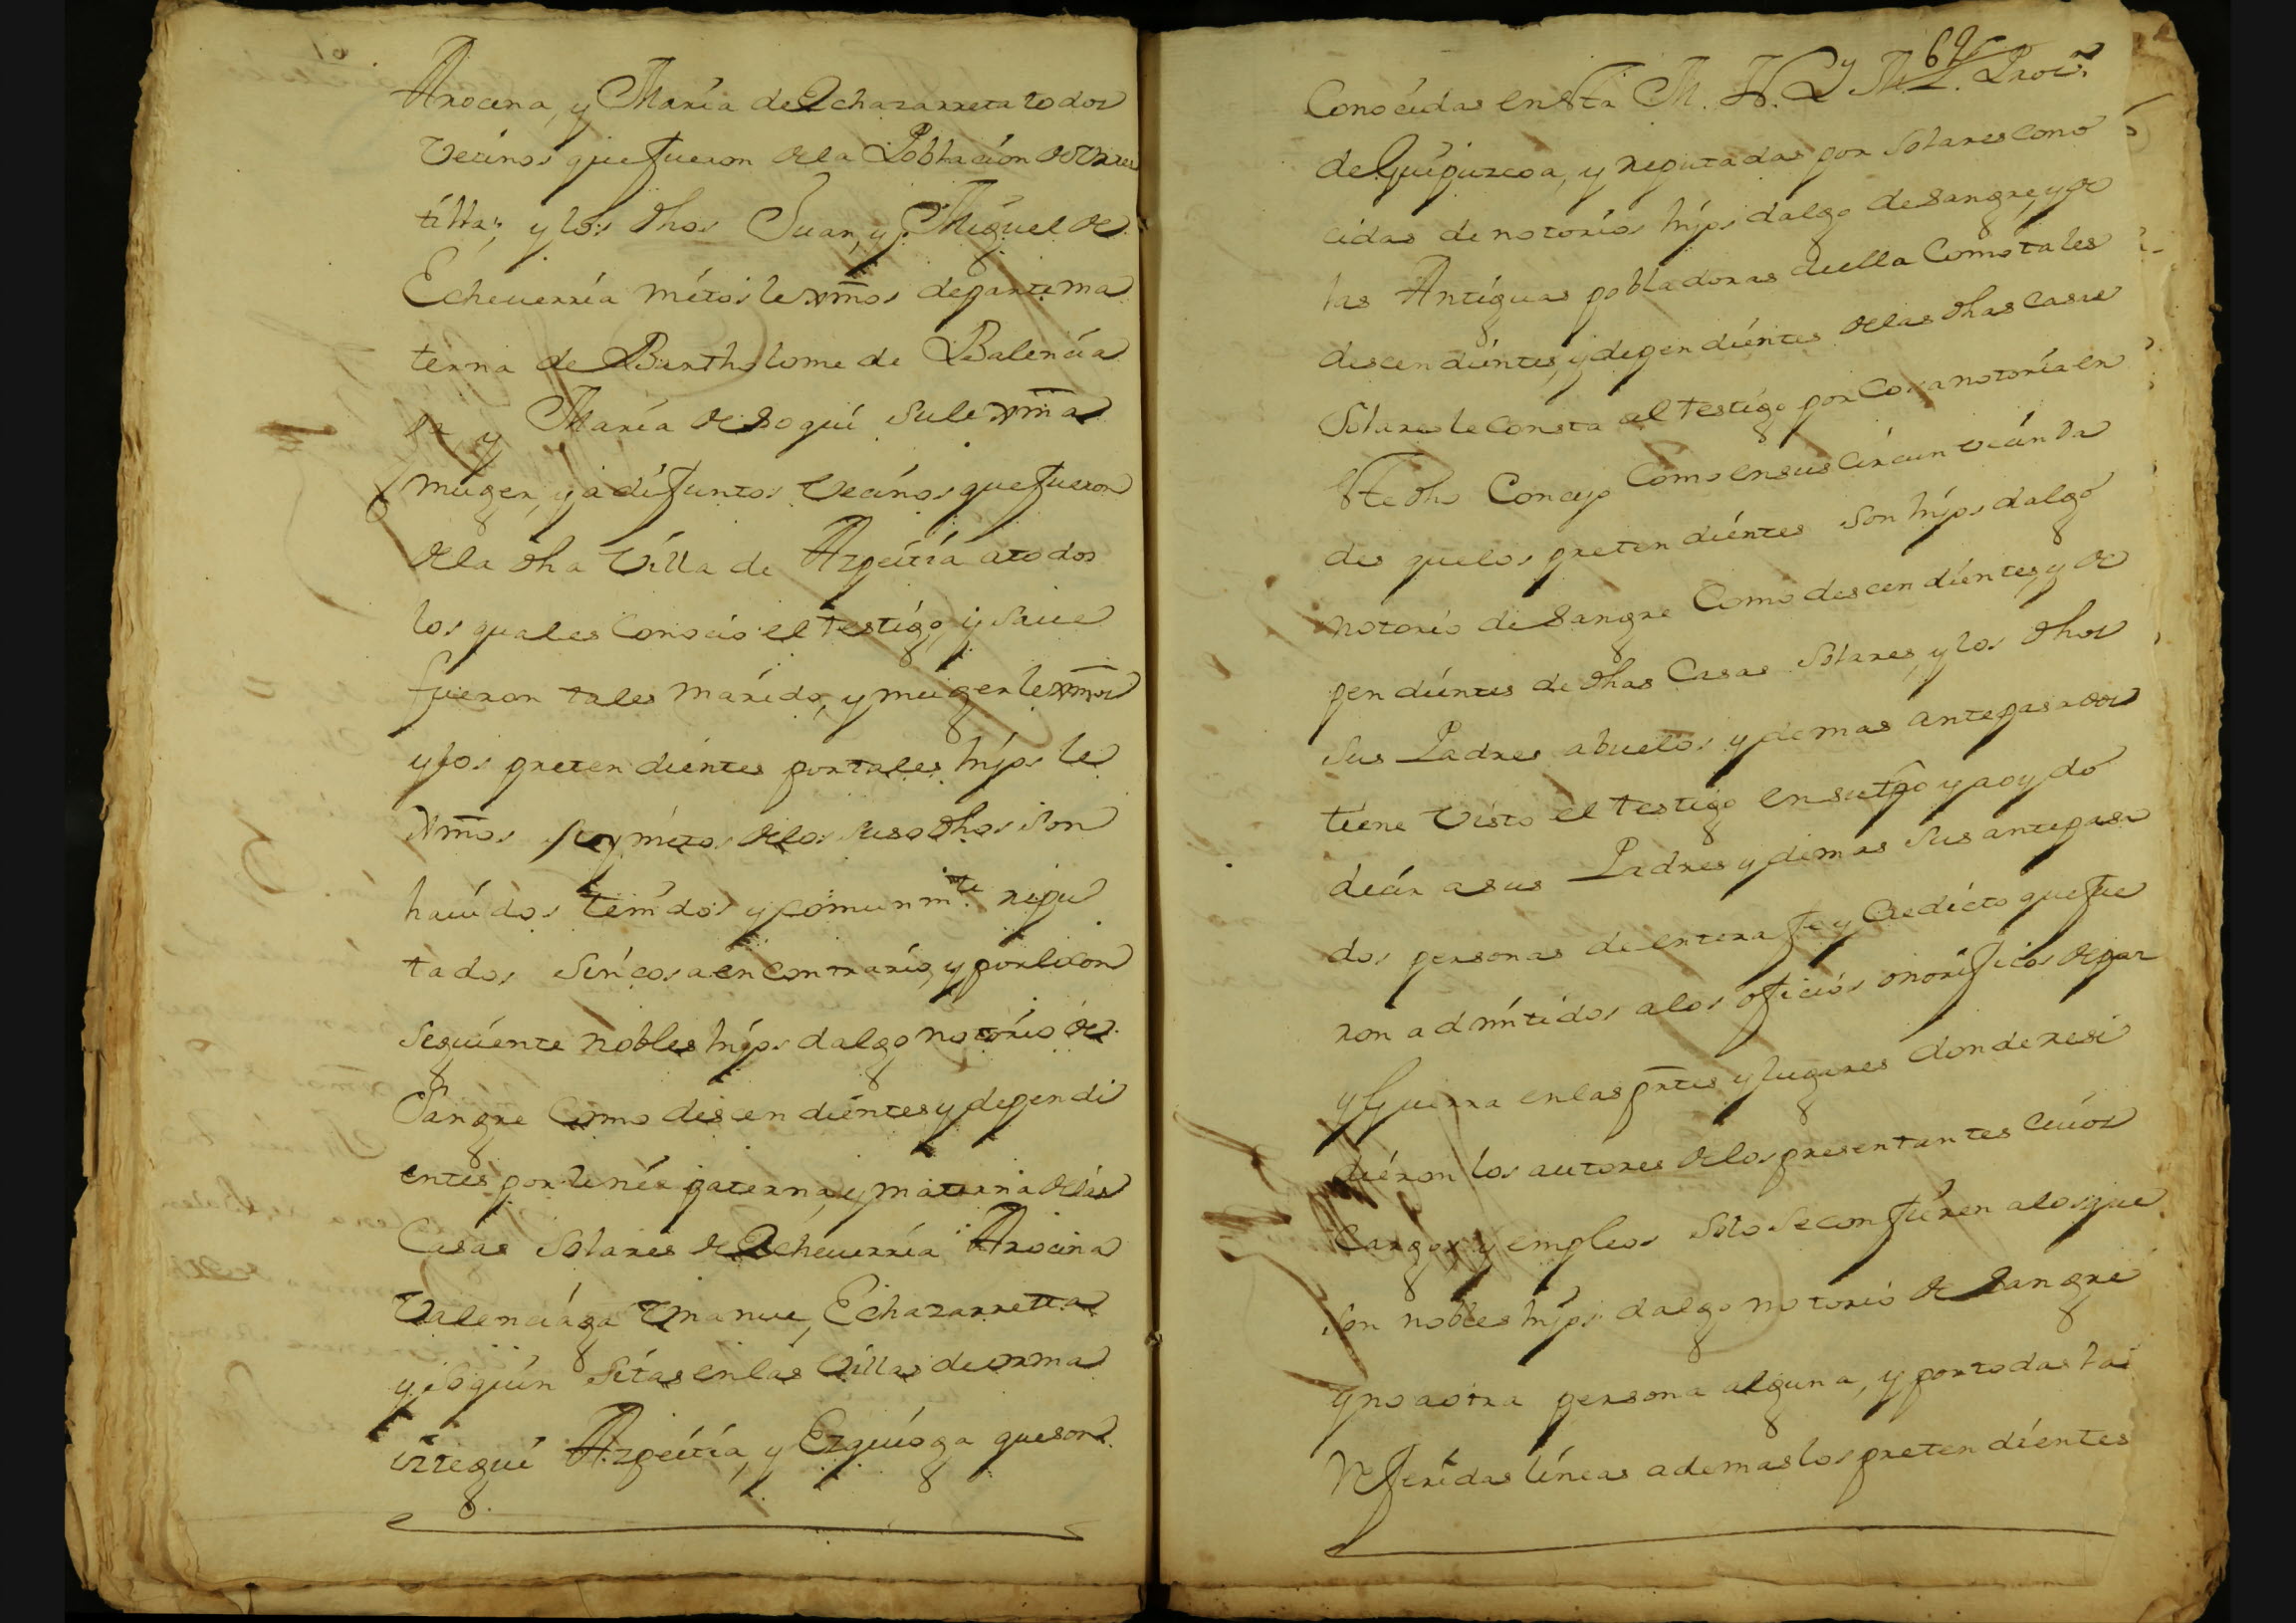 Arocena, y María de Echazarreta todos
Vecinos que fueron de la Poblacion de Vrres
tilla; y los dhos Juan, y Miguel de
Echeuerría nietos lexmos de parte ma
terna de Bartholome de Balencia
ga, y María de Soquí su lexma
muger, ya difuntos Vecinos que fueron
de la dha Villa de Azpeitía a todos
los quales Conocio el testigo, y saue
fueron tales marido, y muger lexmos
y los pretendientes por tales hijos le
xmos y nietos de los suso dhos son
hauidos tenidos y comunmte repu
tados sin cosa en contrario, y por lo con
seguiente nobles hijos dalgo notorio de
Sangre Como descendientes y dependi
entes por linea paterna, y materna de las
Casas Solares de Echeuerría Arocena
Valenciaga Vnanue, Echazarreta
y Soquín sitas en las Villas de Orma
iztegui Azpeitía, y Ezquioga que son
62
Conocidas en esta M. N. y M. L. Prova
de Guipuzcoa, y reputadas por Solares Cono
cidas de notorios hijos dalgo de sangre, y de
las Antiguas pobladoras de ella Como tales
descendientes, y dependientes de las dhas Casas
Solares le Consta al testigo por Cosa notoria en
este dho Concejo Como en sus Circunvecinda
des que los pretendientes son hijos dalgo
notorio de Sangre Como descendientes, y de
pendientes de dhas Casas Solares, y los dhos
sus Padres abuelos y demas antepasados
tiene Visto el testigo en su tpo y a oydo
decir a sus Padres y demas sus antepasa
dos personas de entera fe y Credicto que fue
ron admitidos a los oficios onorificos de paz
y Guerra en las prtes y lugares donde resi
dieron los autores de los presentantes Cuios
Cargos y empleos solo se confieren a los que
son nobles hijos dalgo notorio de Sangre
y no a otra persona alguna, y por todas las
Referidas líneas ademas los pretendientes